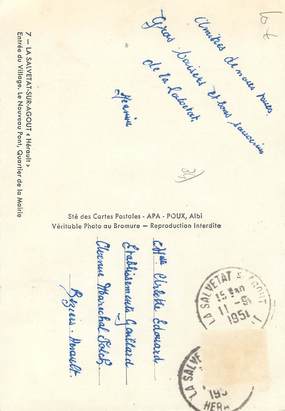 7 - LA SALVETAT-SUR-AGOUT « Hérault »
Entrée du Village. Le Nouveau Pont, Quartier de la Mairie
Amitiés de nous toutes,
Gros baisers et bons souvenirs
de la Salvetat.
Sté des Cartes Postales - APA - POUX, Albi
Véritable Photo au Bromure — Reproduction Interdite
Edouard
Etablissements Gaillard
Avenue Maréchal Foch,
Béziers-Hérault.
LA SALVETAT S AGOUT
1951
LA SALVE
195
HER